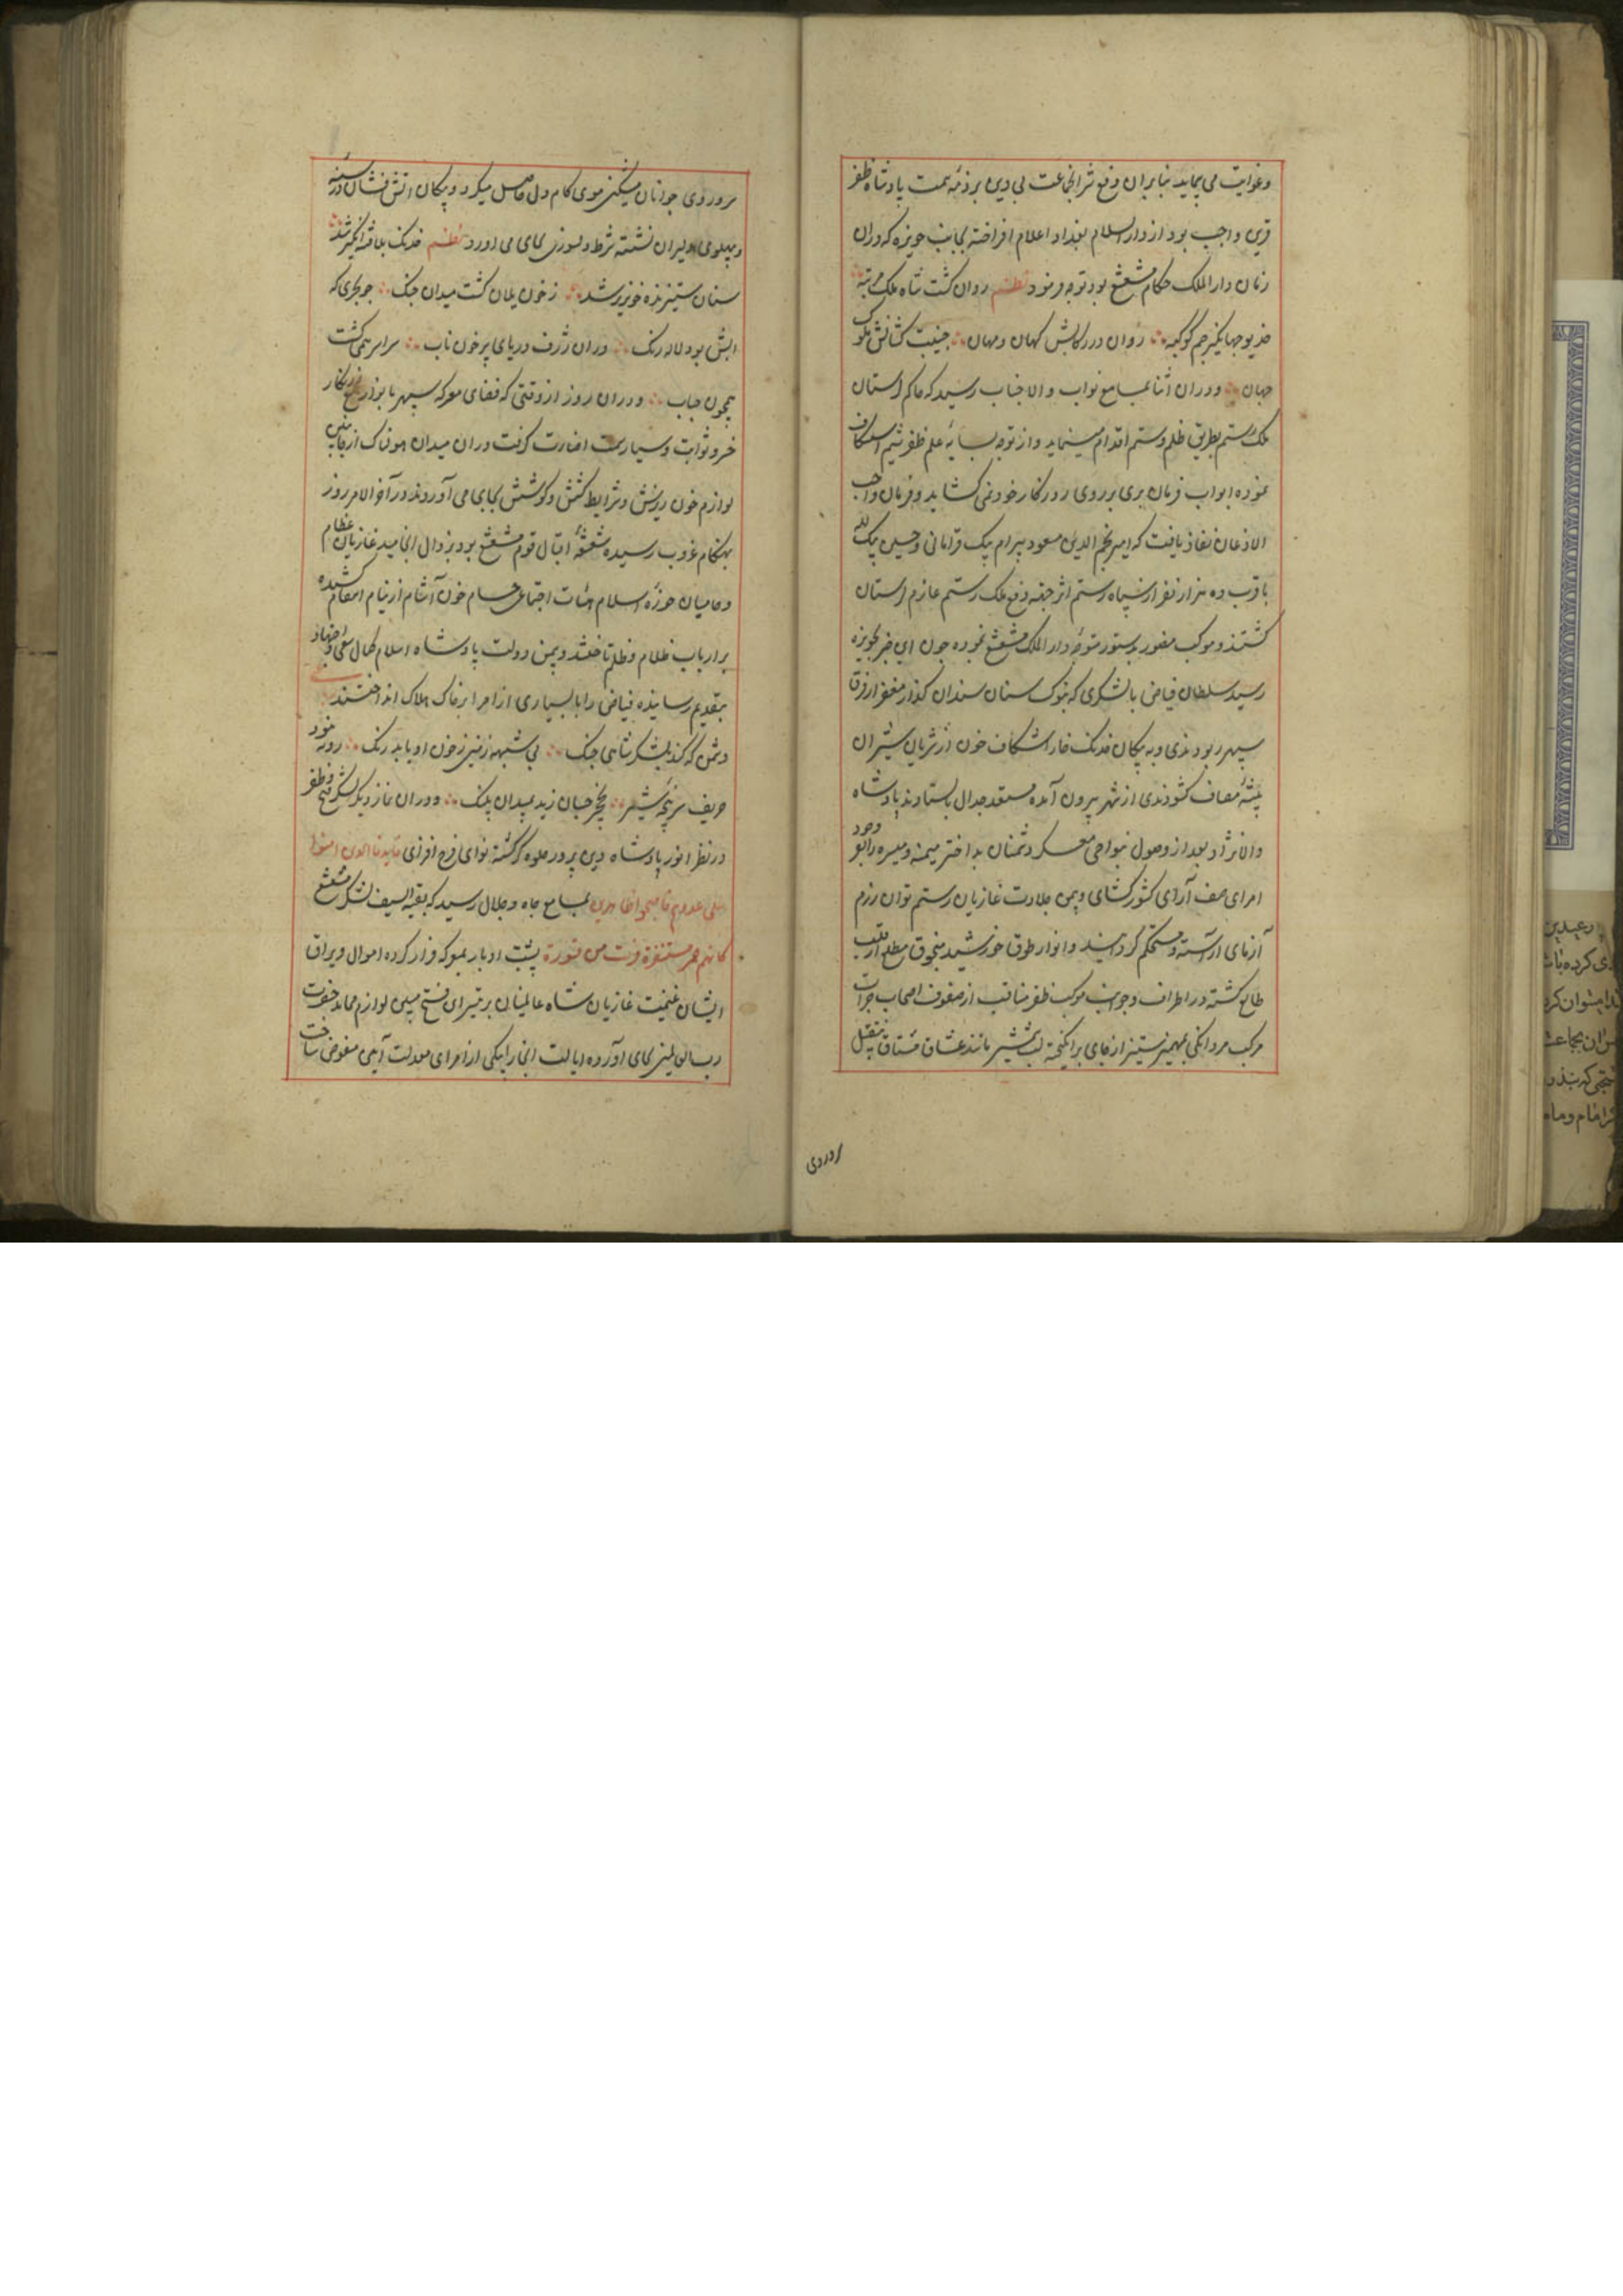 وغوایت می پیماید بنابران دفع شر انجماعت بی دین بر ذمه همت پادشاه ظفر
قرین واجب بود از دار السلام بغداد اعلام افراخته بجانب حویزه که دران
زمان دار الملک حکام مشعشع بود توجه فرمود نظم روان کشت شاه ملک مرتبه
خدیو جهانکیر جم کوکبه روان در رکابش کهان ومهان جنیبت کشانش ملوک
جهان ودران اثنا بمسامع نواب والا جناب رسید که حاکم لرستان
ملک رستم بطریق ظلم وستم اقدام مینماید واز توجه بسایه علم ظفر شیم استنکاف
نموده ابواب فرمان بری بر روی روزکار خود نمی کشاید وفرمان واجب
الاذعان نفاذ یافت که امیر نجم الدین مسعود بیرام بیک قرامانی وحسین بیک لله
با قرب ده هزار نفر از سپاه رستم اثر جهة دفع ملک رستم عازم لرستان
کشتند وموکب منصور بدستور متوجه دار الملک مشعشع نموده چون این خبر بحویزه
رسید سلطان فیاض با لشکری که بنوک سنان سندان کذار مغفر از فرق
سپهر ربودندی وبه پیکان خدنک خارا شکاف خون از شریان شیران
بیشه مصاف کشودندی از شهر بیرون آمده مستعد جدال بایستادند پادشاه
والا نژاد بعد از وصول بنواحی معسکر دشمنان بد اختر میمنه ومیسره را بوجود
امرای صف آرای کشور کشای ویمن جلادت غازیان رستم توان رزم
آزمای آراسته ومستحکم کردانیدند وانوار طوق خورشید منجوق از مطلع قلب
طالع کشته در اطراف وجوانب موکب ظفر مناقب از صفوف اصحاب جرات
مرکب مردانکی بمهمیز ستیز از جای برانکیخته لب شمشیر مانند عشاق مشتاق بتقبیل
سر وروی
سر وروی جوانان مشکین موی کام دل حاصل میکرد وپیکان آتش فشان در سینه
وپهلوی دلیران نشسته شرط دلسوزی بجای می آورد نظم خدنک بلا فتنه انکیز شد
سنان ستیزنده خونریز شد ز خون یلان کشت میدان جنک چو بحری که
آبش بود لاله رنک دران ژرف دریای پر خون ناب سراسر همی کشت
همچون حباب ودران روز از وقتی که فضای معرکه سپهر با بوذر تیغ زرنکار
خسرو ثوابت وسیار سمت اضاءت کرفت دران میدان هولناک از جانبین
لوازم خون ریزش وشرایط کشش وکوشش بجای می آوردند در آخر الامر روز
بهنکام غروب رسیده شعشعه اقبال قوم مشعشع بود بزوال انجامید غازیان عظام
وحامیان حوزه اسلام بهیأت اجتماعی حسام خون آشام از نیام انتقام کشیده
بر ارباب ظلام وظلم تاختند وبیمن دولت پادشاه اسلام کمال سعی واجتهاد
بتقدیم رسانیده فیاض را با بسیاری از امرا بر خاک هلاک انداختند
دشمن که کند بلشکر شاهی جنک بی شبهه زمین ز خون او یابد رنک روبه نبود
حریف سرپنجه شیر خر جان زید بمیدان پلنک ودران نماز دیکر لشکر فتح وظفر
در نظر انور پادشاه دین پرور جلوه کر کشته نوای فرح افزای فایدنا الذین امنوا
علی عدوهم فاصبحوا ظاهرین بمسامع جاه وجلال رسید که بقیة السیف لشکر مشعشع
کانهم حمر مستنفرة فرت من قسورة پشت ادبار بمعرکه فرار کرده اموال ویراق
ایشان غنیمت غازیان شاه عالمیان بر تیسر این فتح مبین لوازم محامد حضرت
رب العالمین بجای آورده ایالت انجا را بیکی از امرای معدلت آیین مفوض ساخت